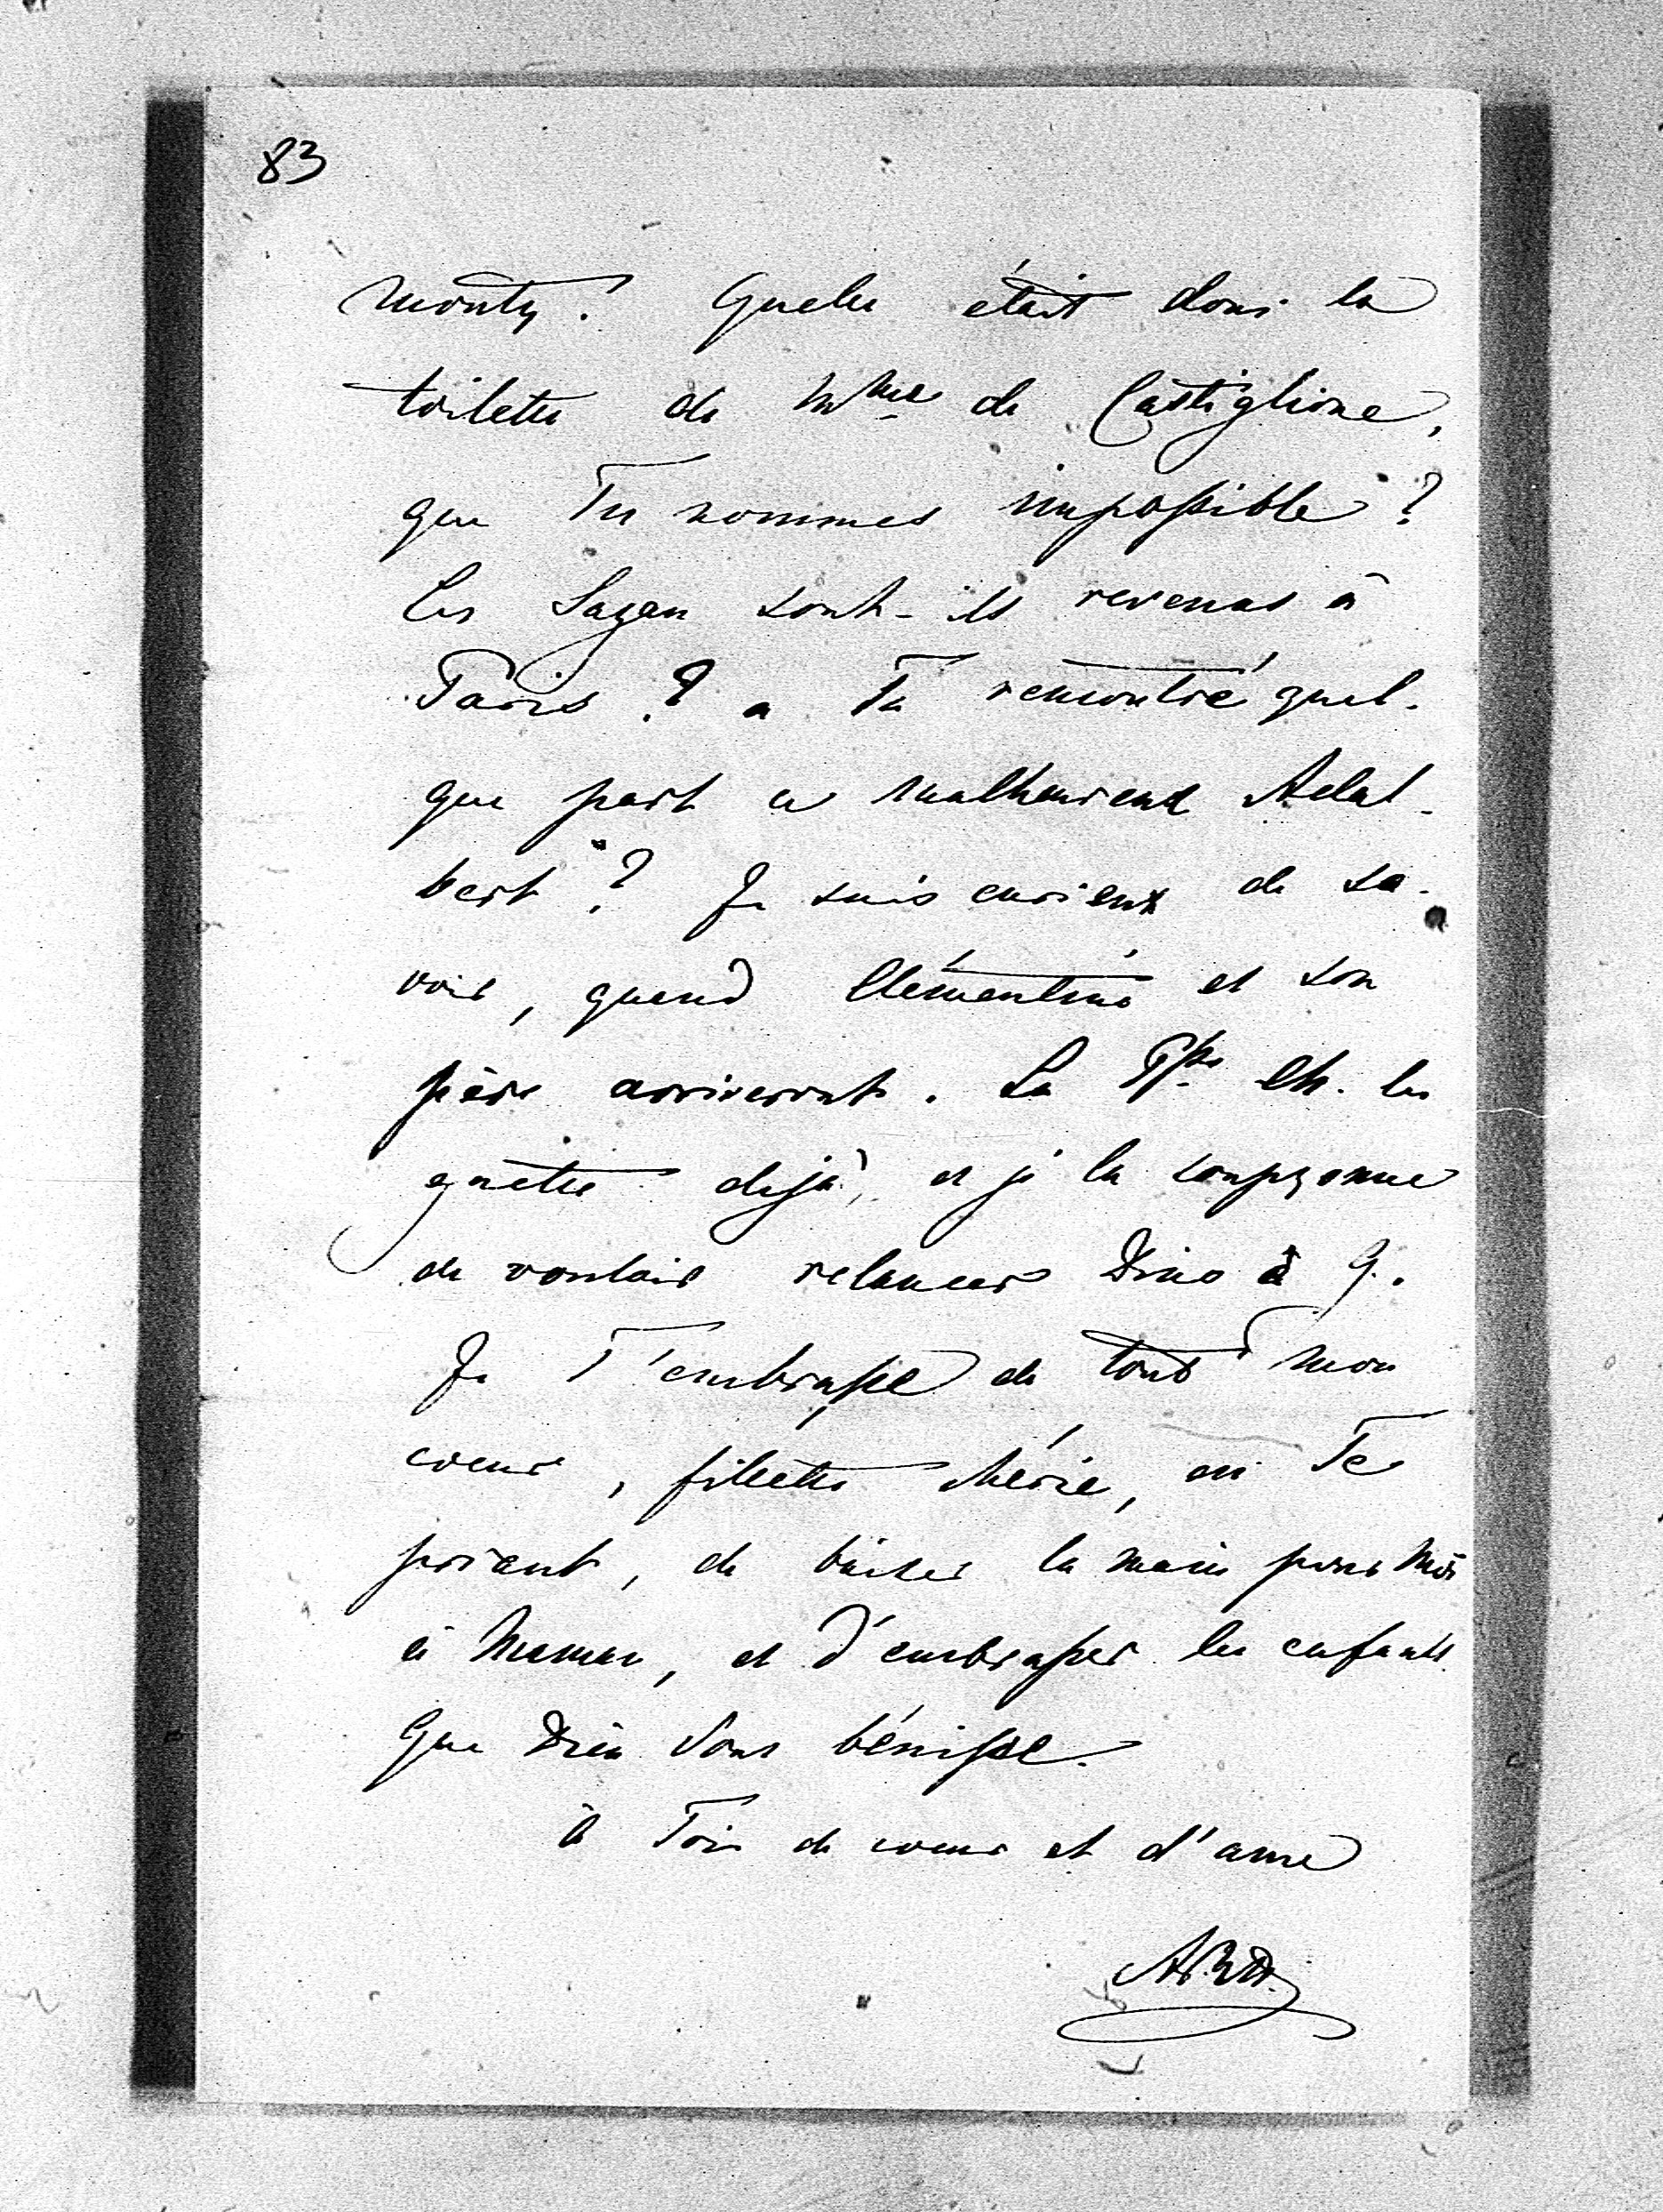 83
monty? Quelle était donc la
toilette de Mme de Castiglione,
que Tu nommes impossible?
Les Sagan sont-ils revenus à
Paris? a Tu rencontré quel-
que part ce malheureux Adal-
bert? Je suis curieux de sa-
voir, quand Clémentine et son
père arriveront. La Psse Ch. les
guette déjà, et je la soupçonne
de vouloir relancer Dino à G.
Je T'embrasse de tout mon
coeur, fillette chérie, en Te
priant, de baiser la main pour moi
à Maman, et d'embrasser les enfants.
Que Dieu Vous bénisse.
à Toi de coeur et d'ame